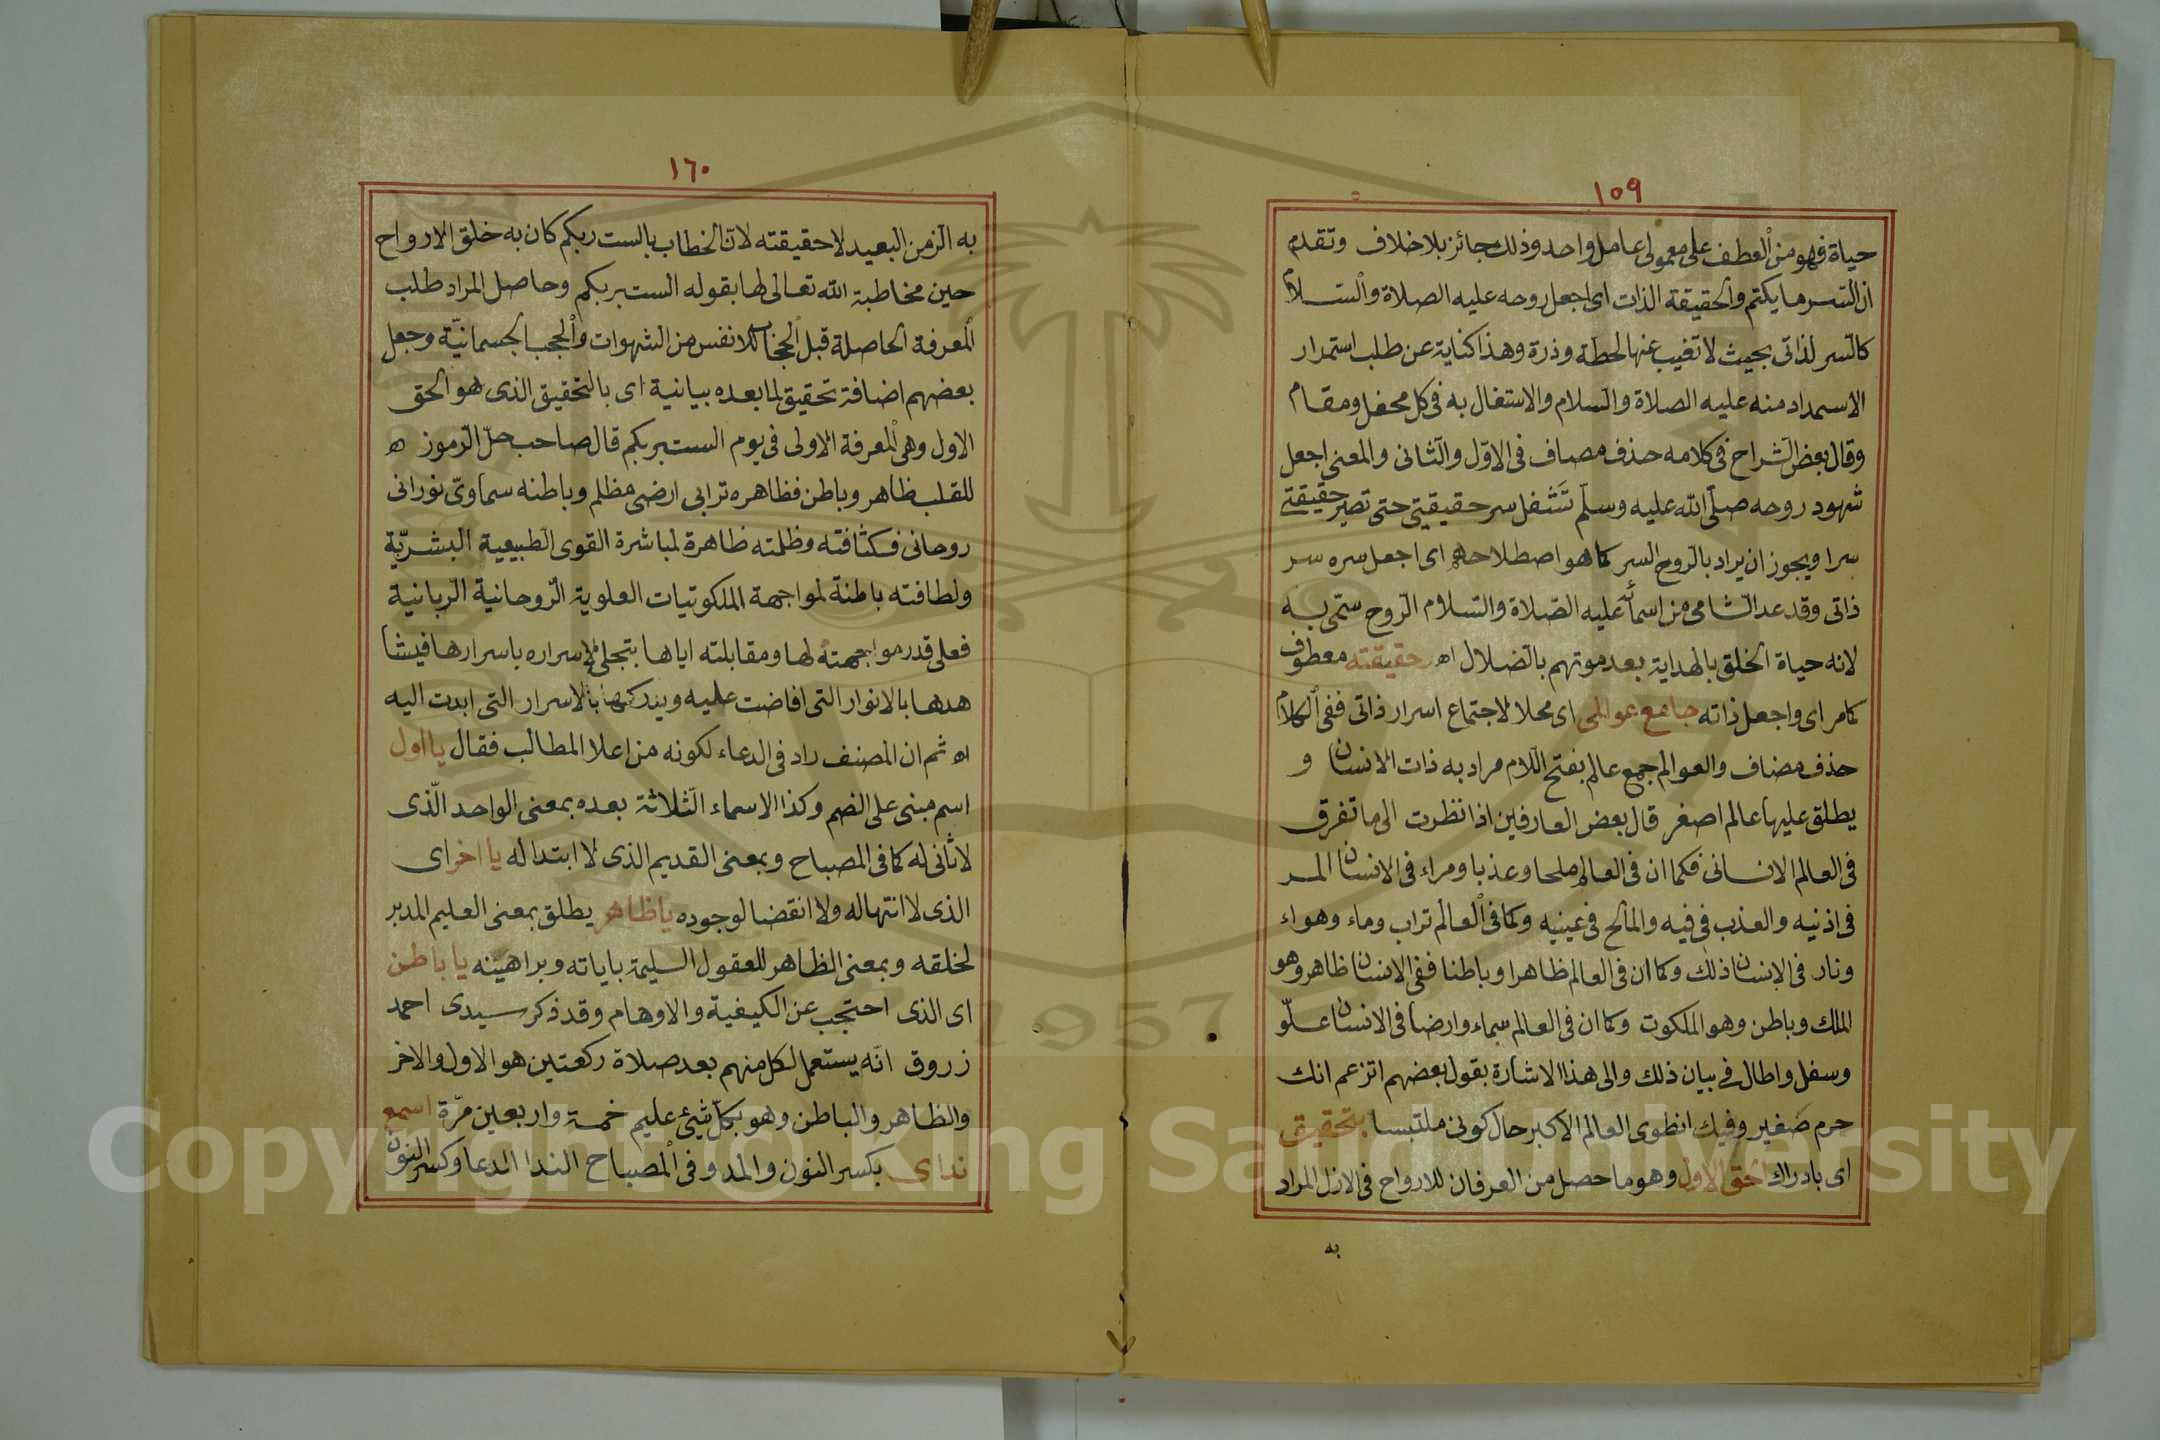 ١٥٩
حياة فهو من العطف على معمولى عامل واحد وذلك جائز بلا خلاف وتقدم
ان السر ما يكتم والحقيقة الذات اى اجعل روحه عليه الصلاة والسلام
كالسر لذاتى بحيث لا تغيب عنها لحظة وذرة وهذا كناية عن طلب استمرار
الاستمداد منه عليه الصلاة والسلام والاستغال به فى كل محفل ومقام
وقال بعض الشراح فى كلامه حذف مصاف فى الاوّل والثانى والمعنى اجعل
شهود روحه صلّى الله عليه وسلم تَشغل سر حقيقيتى حتى تصير حقيقتى
سرا ويجوز ان يراد بالروح السر كما هو اصطلاحهم اى اجعل سره سر
ذاتى وقد عد الشامى من اسمائه عليه الصّلاة والسلام الروح سمّى به
لانه حياة الخلق بالهداية بعد موتهم بالضلال اه وحقيقته معطوف
كامر اى واجعل ذاته جامع عوالمى اى محلا لاجتماع اسرار ذاتى ففى الكلام
حذف مضاف والعوالم جمع عالم بفتح اللام مراد به ذات الانسان و
يطلق عليها عالم اصغر قال بعض العارفين اذا نظرت الى ما تفرق
فى العالم الانسانى فكما ان فى العالم ملحا وعذبا ومراء فى الانسان المر
فى اذنيه والعذب فى فيه والمالح فى عينيه وكما فى العالم تراب وماء وهواء
ونار فى الانسان ذلك وكما ان فى العالم ظاهرا وباطنا ففى الانسان ظاهر وهو
الملك وباطن وهو الملكوت وكما ان فى العالم سماء وارضا فى الانسان علوّ
وسفل واطال فى بيان ذلك والى هذا الاشارة بقول بعضهم اتزعم انك
جرم صغير وفيك انطوى العالم الاكبر حال كونى ملتبسا بتحقيق
اى بادراك الحق الاول وهو ما حصل من العرفان للارواح فى الازل المراد
به
١٦٠
به الزمن البعيد لا حقيقته لان الخطاب بالست ربكم كان به خلق الارواح
حين مخاطبة الله تعالى لها بقوله الست بربكم وحاصل المراد طلب
المعرفة الحاصلة قبل الحجاب للانفس من الشهوات والحجب الجسمانيّة وجعل
بعضهم اضافة تحقيق لما بعده بيانية اى بالتحقيق الذى هو الحق
الاول وهى المعرفة الاولى فى يوم الست بربكم قال صاحب حلّ الرموز ه
للقلب ظاهر وباطن فظاهره ترابى ارضى مظلم وباطنه سماوىّ نورانى
روحانى فكثافته وظلمته ظاهرة لمباشرة القوى الطبيعية البشريّة
ولطافته باطنة لمواجهة الملكوتيات العلوية الروحانية الربانية
فعلى قدر مواجهته لها ومقابلته اياها بتجلى لاسراره باسرارها فيشا
هدها بالانوار التى افاضت عليه ويدركها بالاسرار التى ابدت اليه
اه ثم ان المصنف زاد فى الدعاء لكونه من اعلا المطالب فقال يا اول
اسم مبنى على الضم وكذا الاسماء الثلاثة بعده بمعنى الواحد الّذى
لا ثانى له كما فى المصباح وبمعنى القديم الذى لا ابتدا له يا اخر اى
الذى لا انتها له ولا انقضا لوجوده يا ظاهر يطلق بمعنى العليم المدبر
لخلقه وبمعنى الظاهر للعقول السليمة باياته وبراهينه يا باطن
اى الذى احتجب عن الكيفية والاوهام وقد ذكر سيدى احمد
زروق انّه يستعمل لكل منهم بعد صلاة ركعتين هو الاول والاخر
والظاهر والباطن وهو بكل شيئ عليم خمسة واربعين مرّة اسمع
نداى بكسر النون والمد وفى المصباح الندا الدعا وكسر النون
1957
Copyright © King Saud University